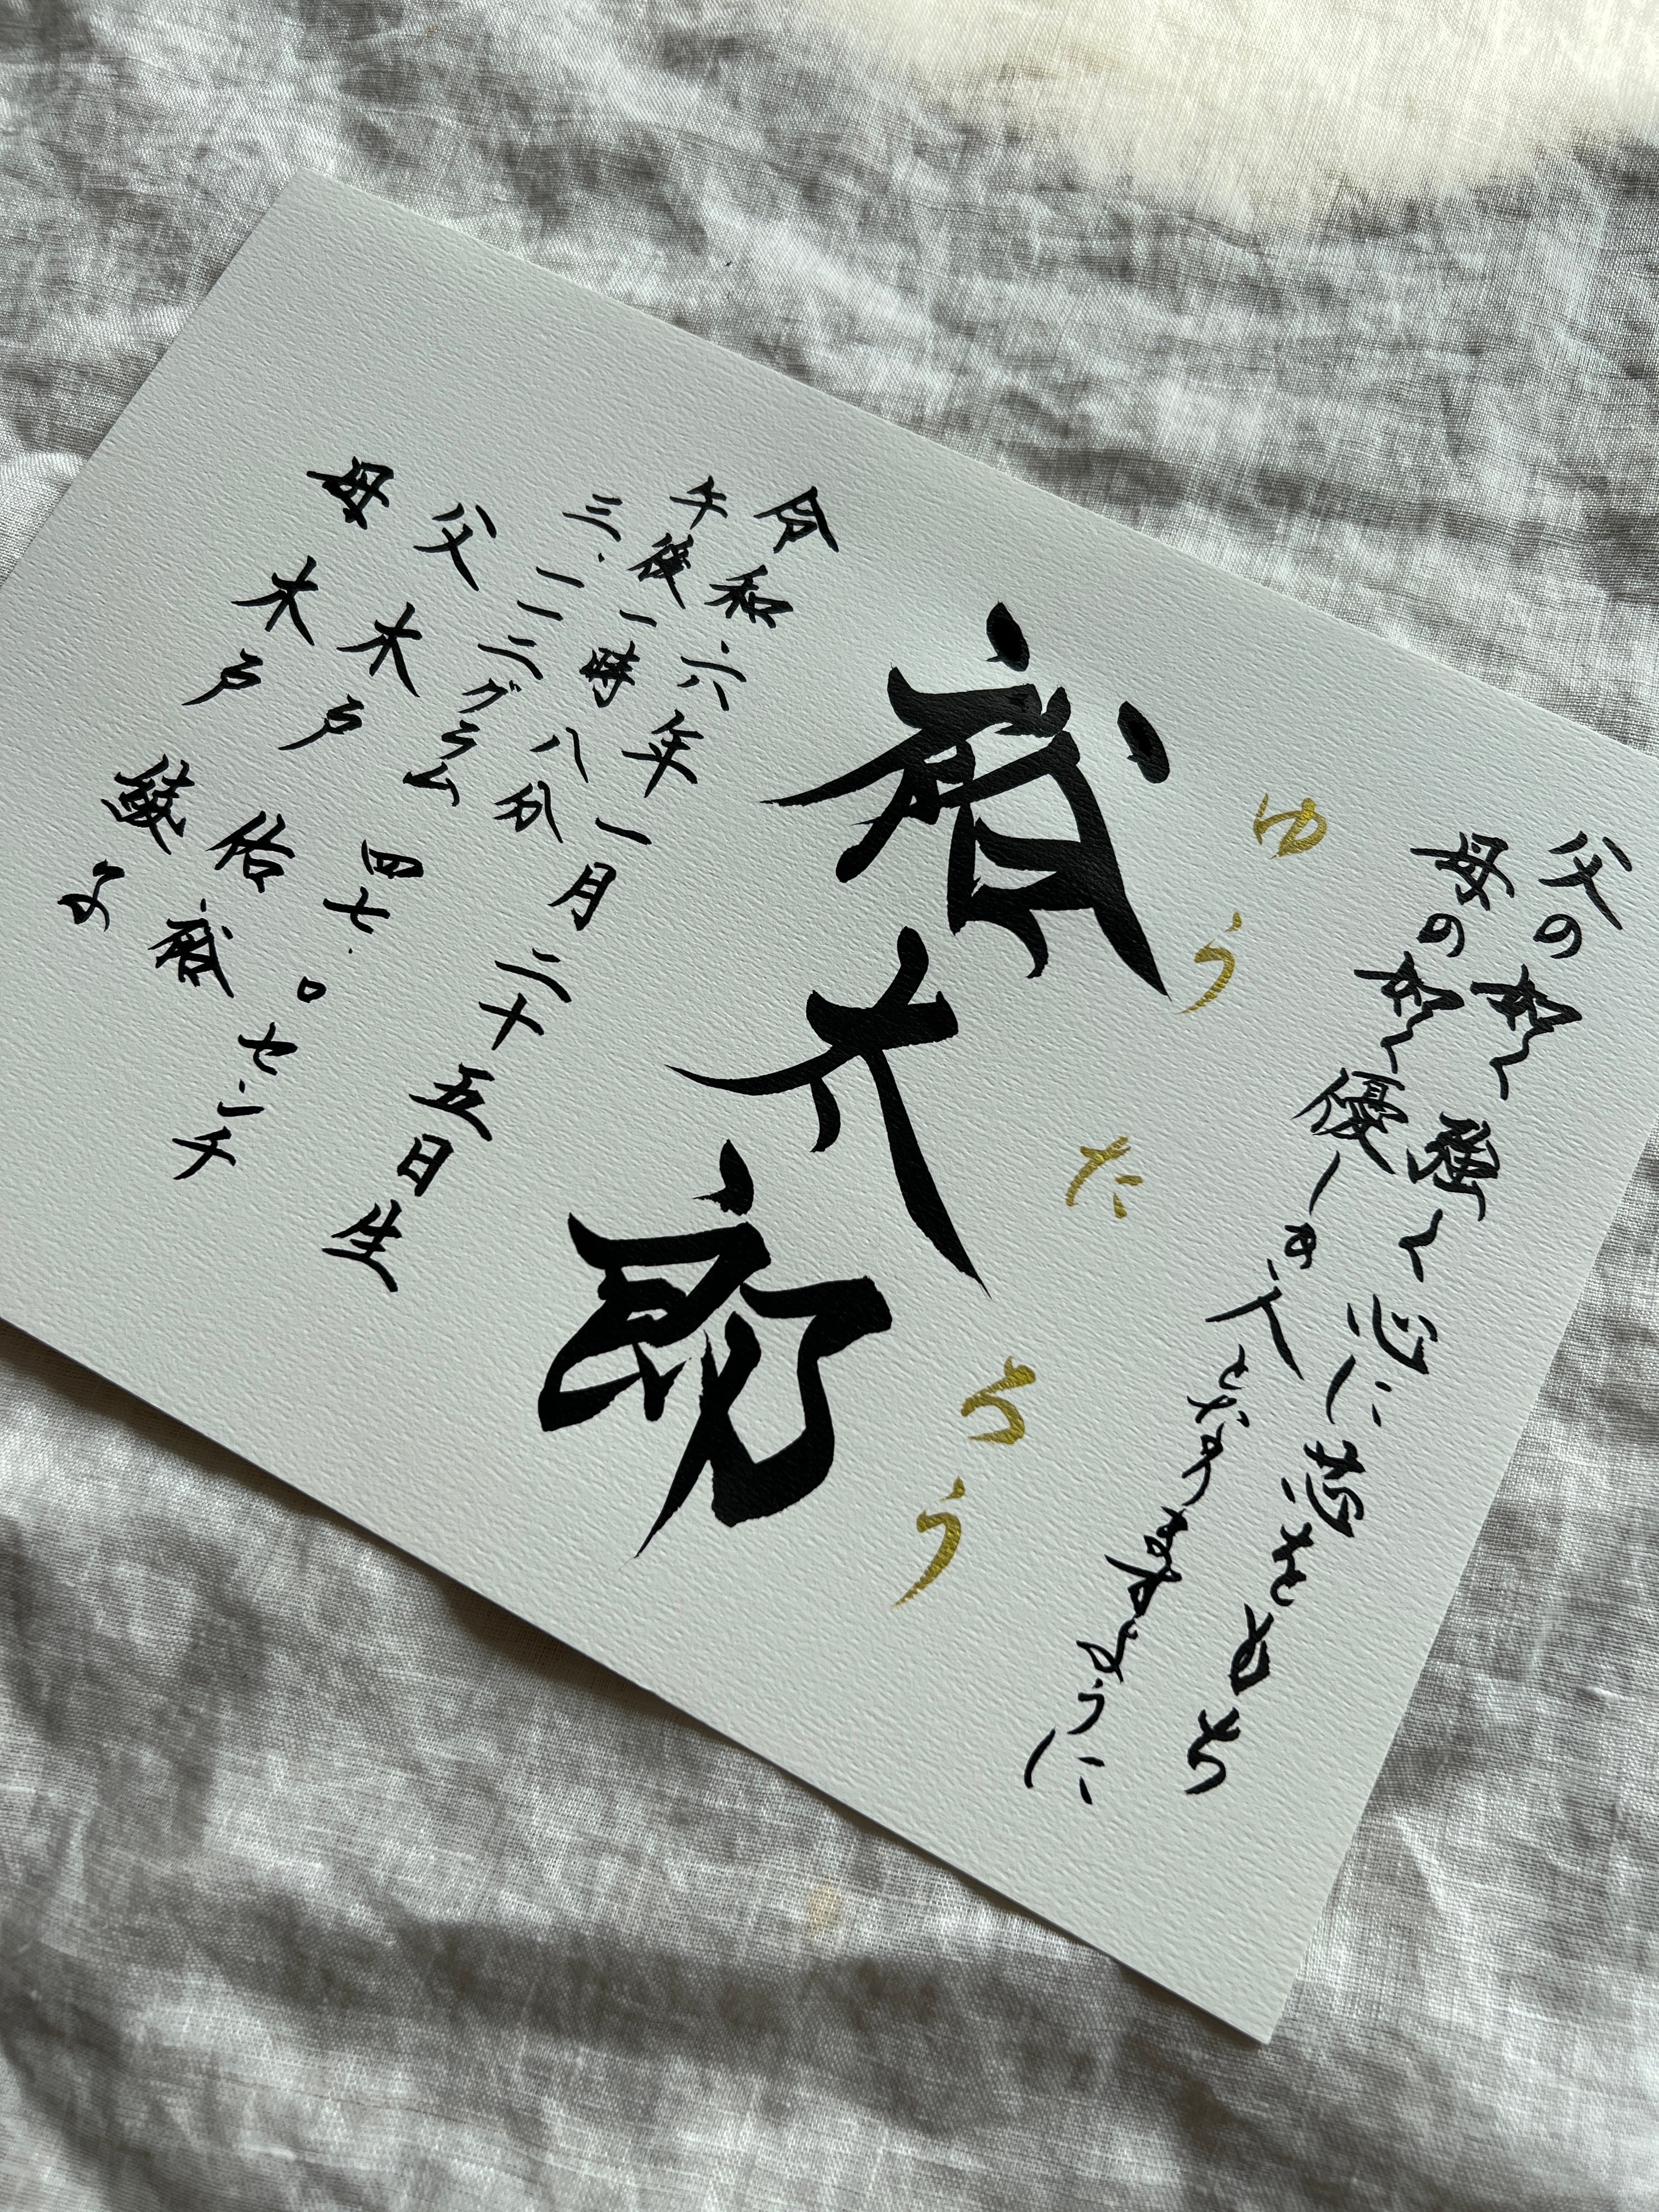 父の如く強く心に芯をもち
母の如く優しき人となりますように
ゆうたろう
裕太郎
令和六年一月二十五日生
午後一時八分
三.一一二グラム 四七.〇センチ
父 木戸 佑裕
母 木戸